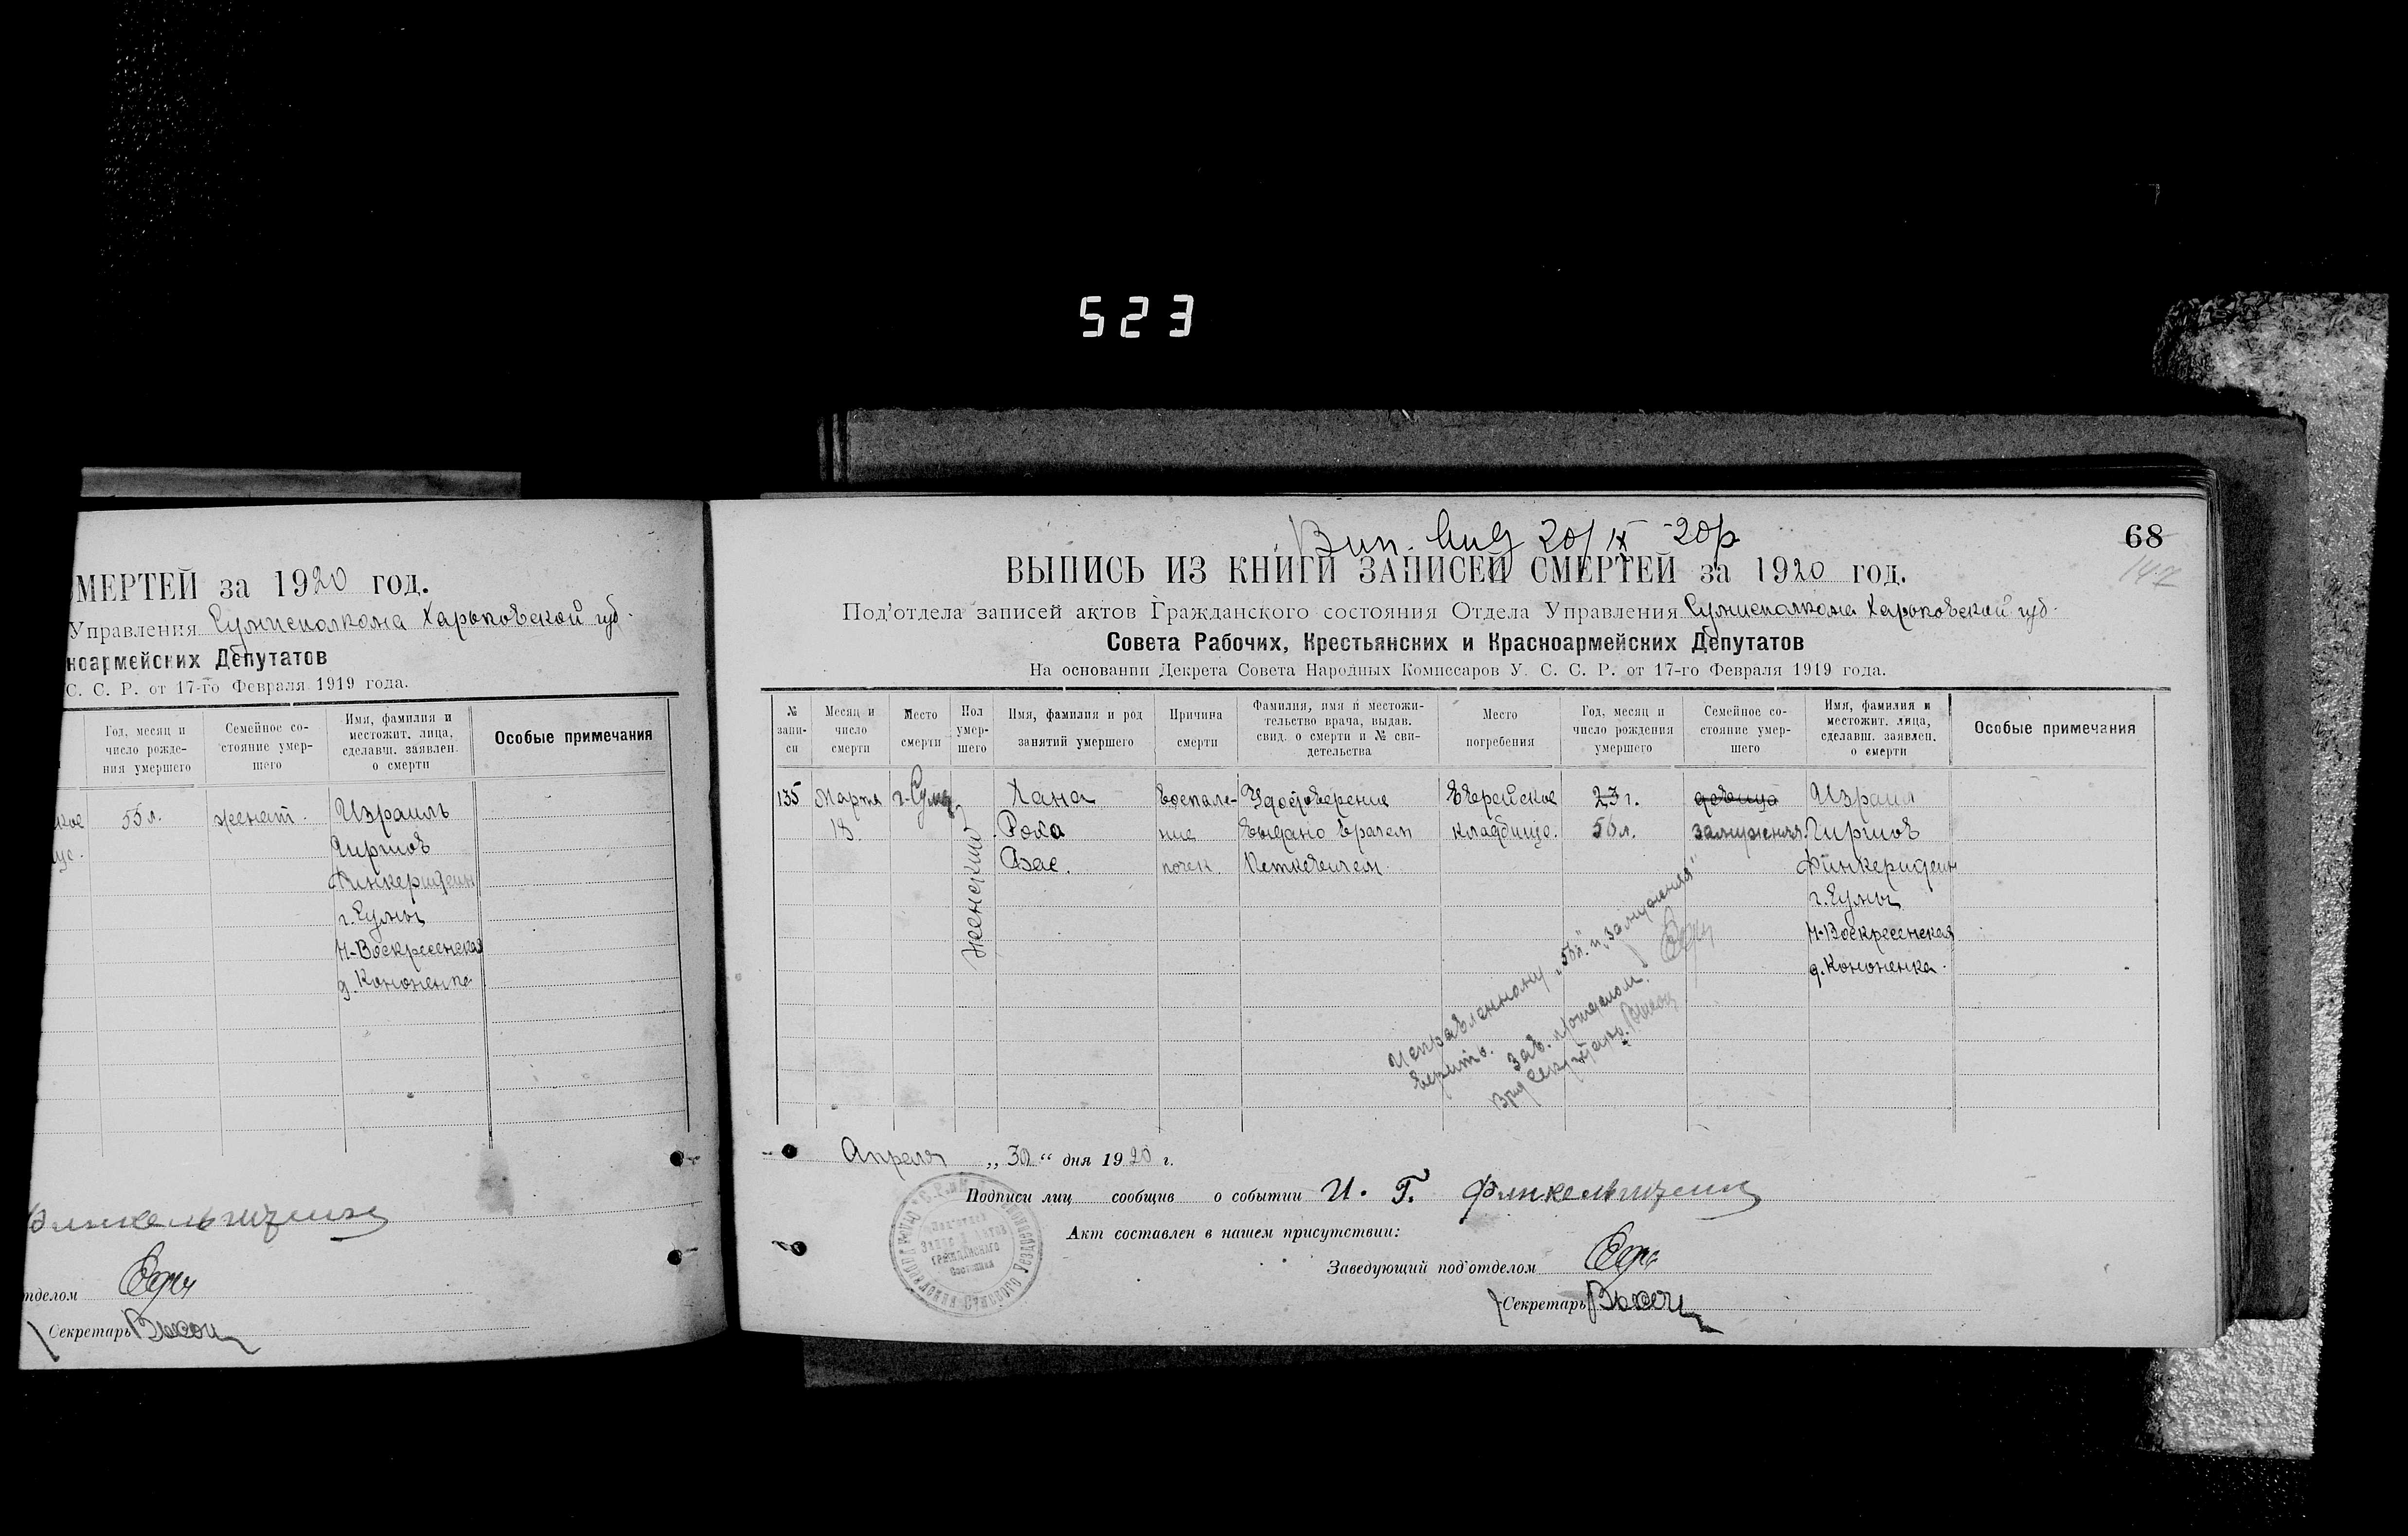 523
МЕРТЕЙ за 1920 год.
Управления Сумисполкома Харьковской губ.
ноармейских Депутатов
С. С. Р. от 17-го Февраля 1919 года.
Год, месяц и
число рожде-
ния умершего
Семейное со-
стояние умер-
шего
Имя, фамилия и
местожит. лица,
сделавш. заявлен.
о смерти
Особые примечания
кое
55 л.
женат.
Израиль
Гиршов
Финкерштейн
г. Сумы
Н-Воскресенская
д. Кононенко
Финкельштейн
тделом
Секретарь
Вип. вид 20/IX -20р
68
147
ВЫПИСЬ ИЗ КНИГИ ЗАПИСЕЙ СМЕРТЕЙ за 1920 год.
Под'отдела записей актов Гражданского состояния Отдела Управления Сумисполкома Харьковской губ.
Совета Рабочих, Крестьянских и Красноармейских Депутатов
На основании Декрета Совета Народных Комиссаров У. С. С. Р. от 17-го Февраля 1919 года.
№
запи-
си
Месяц и
число
смерти
Место
смерти
Пол
умер-
шего
Имя, фамилия и род
занятий умершего
Причина
смерти
Фамилия, имя и местожи-
тельство врача, выдав.
свид. о смерти и № сви-
детельства
Место
погребения
Год, месяц и
число рождения
умершего
Семейное со-
стояние умер-
шего
Имя, фамилия и
местожит. лица,
сделавш. заявлен.
о смерти
Особые примечания
135
Марта
18
г. Сумы
Женский
Хана
Роха
Воспале-
ние
почек.
Удостоверение
выдано врачем
Петкевичем.
Еврейское
кладбище.
23 г.
56 л.
девица
замужняя.
Израил
Гиршов
Финкерштейн
г. Сумы
Н-Воскресенская
д. Кононенка.
Исправленному „56 л.“ и „замужняя“
верить.
Зав. п/отделом
Врид Секретарь
Апреля „30“ дня 1920 г.
Подписи лиц сообщив о событии И. Г. Финкельштейн
Акт составлен в нашем присутствии:
Заведующий под'отделом
Секретарь
Под'отдел
Записи Актов
Гражданского
Состояния